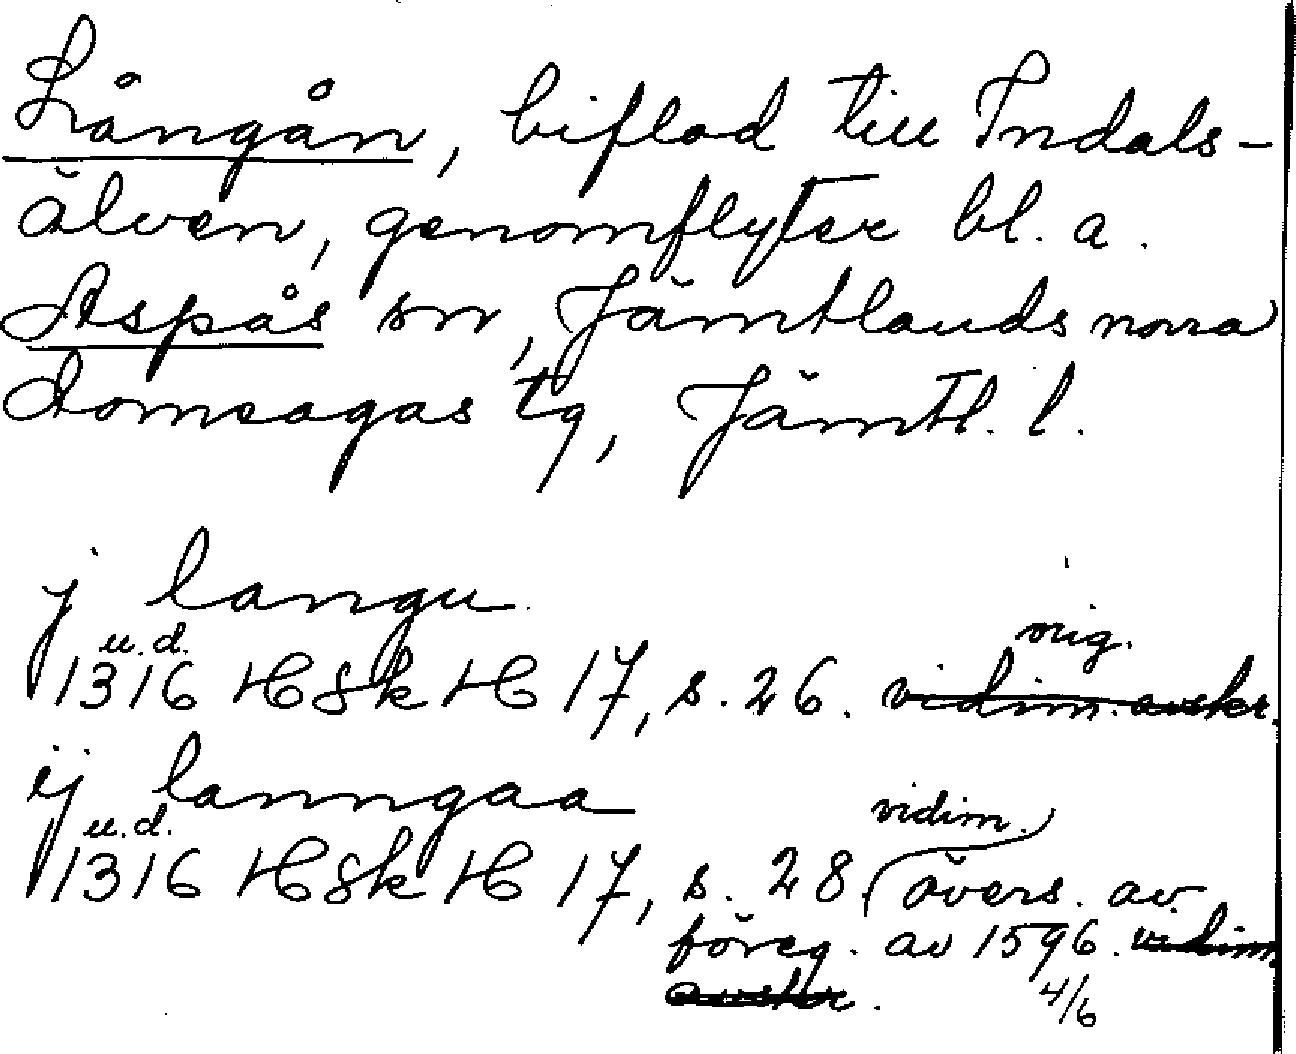 Långån, biflod till Indals-
älven, genomflyter bl. a.
Aspås sn, Jämtlands norra
domsagas tg, Jämtl. l.
j langu
orig.
u.d.
1316 HSkH 17, s. 26. vidim. avskr.
ij lanngaa
u.d. vidim.
1316 HSkH 17, s. 28 övers. av
föreg. av 1596. vidim.
avskr. 4/6